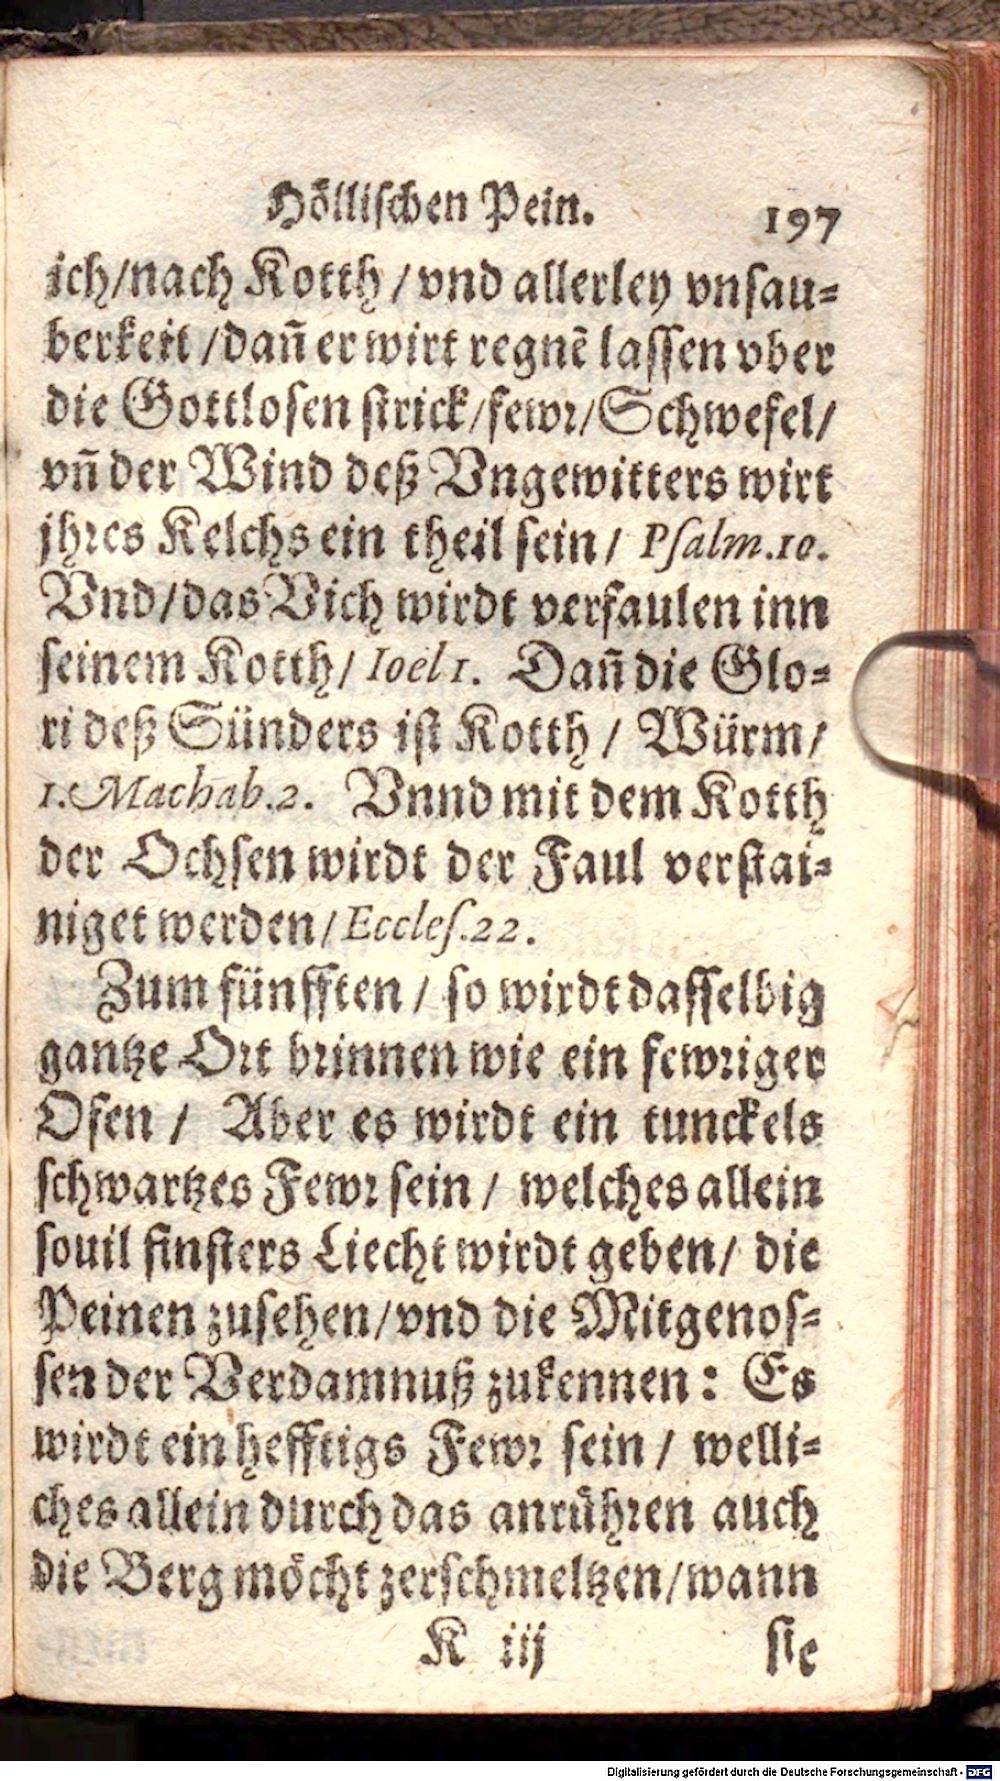 Höllischen Pein. 197
ich/nach Kotth/vnd allerley vnsau-
berkeit/dañ er wirt regnē lassen vber
die Gottlosen strick/fewr/Schwefel/
vñ der Wind deß Vngewitters wirt
jhres Kelchs ein theil sein/ Psalm.10.
Vnd/das Vich wirdt verfaulen inn
seinem Kotth/ Ioel 1. Dañ die Glo-
ri deß Sünders ist Kotth/ Würm/
1. Machab.2. Vnnd mit dem Kotth
der Ochsen wirdt der Faul verstai-
niget werden/ Eccles.22.
Zum fünfften/ so wirdt dasselbig
gantze Ort brinnen wie ein fewriger
Ofen/ Aber es wirdt ein tunckels
schwartzes Fewr sein/ welches allein
souil finsters Liecht wirdt geben/ die
Peinen zusehen/vnd die Mitgenos-
sen der Verdamnuß zukennen: Es
wirdt ein hefftigs Fewr sein/ welli-
ches allein durch das anrühren auch
die Berg möcht zerschmeltzen/wann
K iij sie
Digitalisierung gefördert durch die Deutsche Forschungsgemeinschaft - DFG